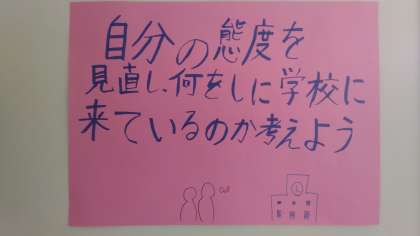 自分の態度を
見直し、何をしに学校に
来ているのか考えよう